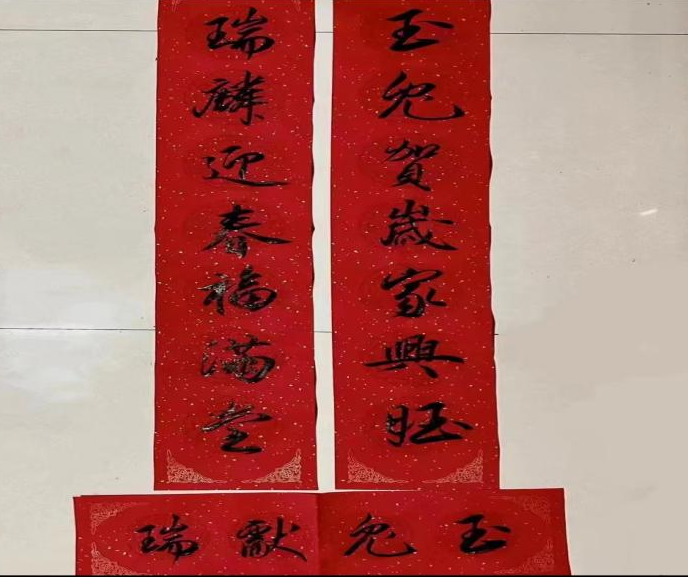 玉兔賀歲家興旺
瑞麟迎春福满堂
玉兔獻瑞